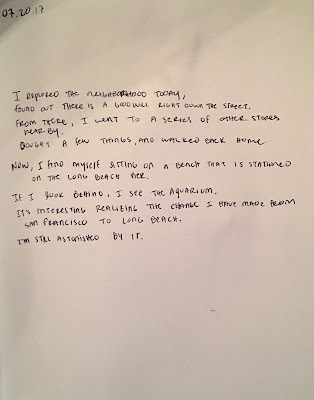 07.20.17
I explored the neighborhood today,
found out there is a goodwill right down the street.
From there, I went to a series of other stores
nearby.
Bought a few things, and walked back home
Now, I find myself sitting on a bench that is stationed
on the Long Beach Pier.
If I look behind, I see the aquarium.
It's interesting realizing the change I have made from
San Francisco to Long Beach.
I'm still astonished by it.